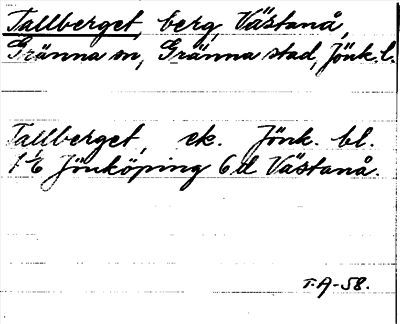 Tallberget, berg, Västanå,
Gränna sn, Gränna stad, Jönk. l.
Tallberget, ek. Jönk. bl.
1 1/6 Jönköping 6 d Västanå.
T.A-58.